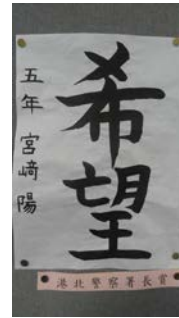 希望
五年 宮﨑陽
港北警察署長賞